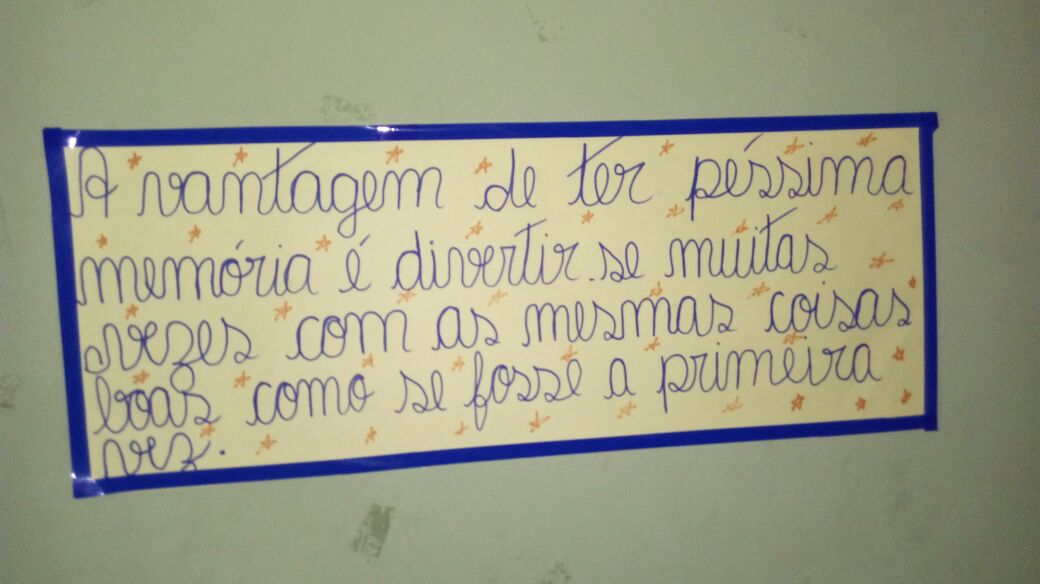 A vantagem de ter péssima
memória é divertir-se muitas
vezes com as mesmas coisas
boas como se fosse a primeira
vez.